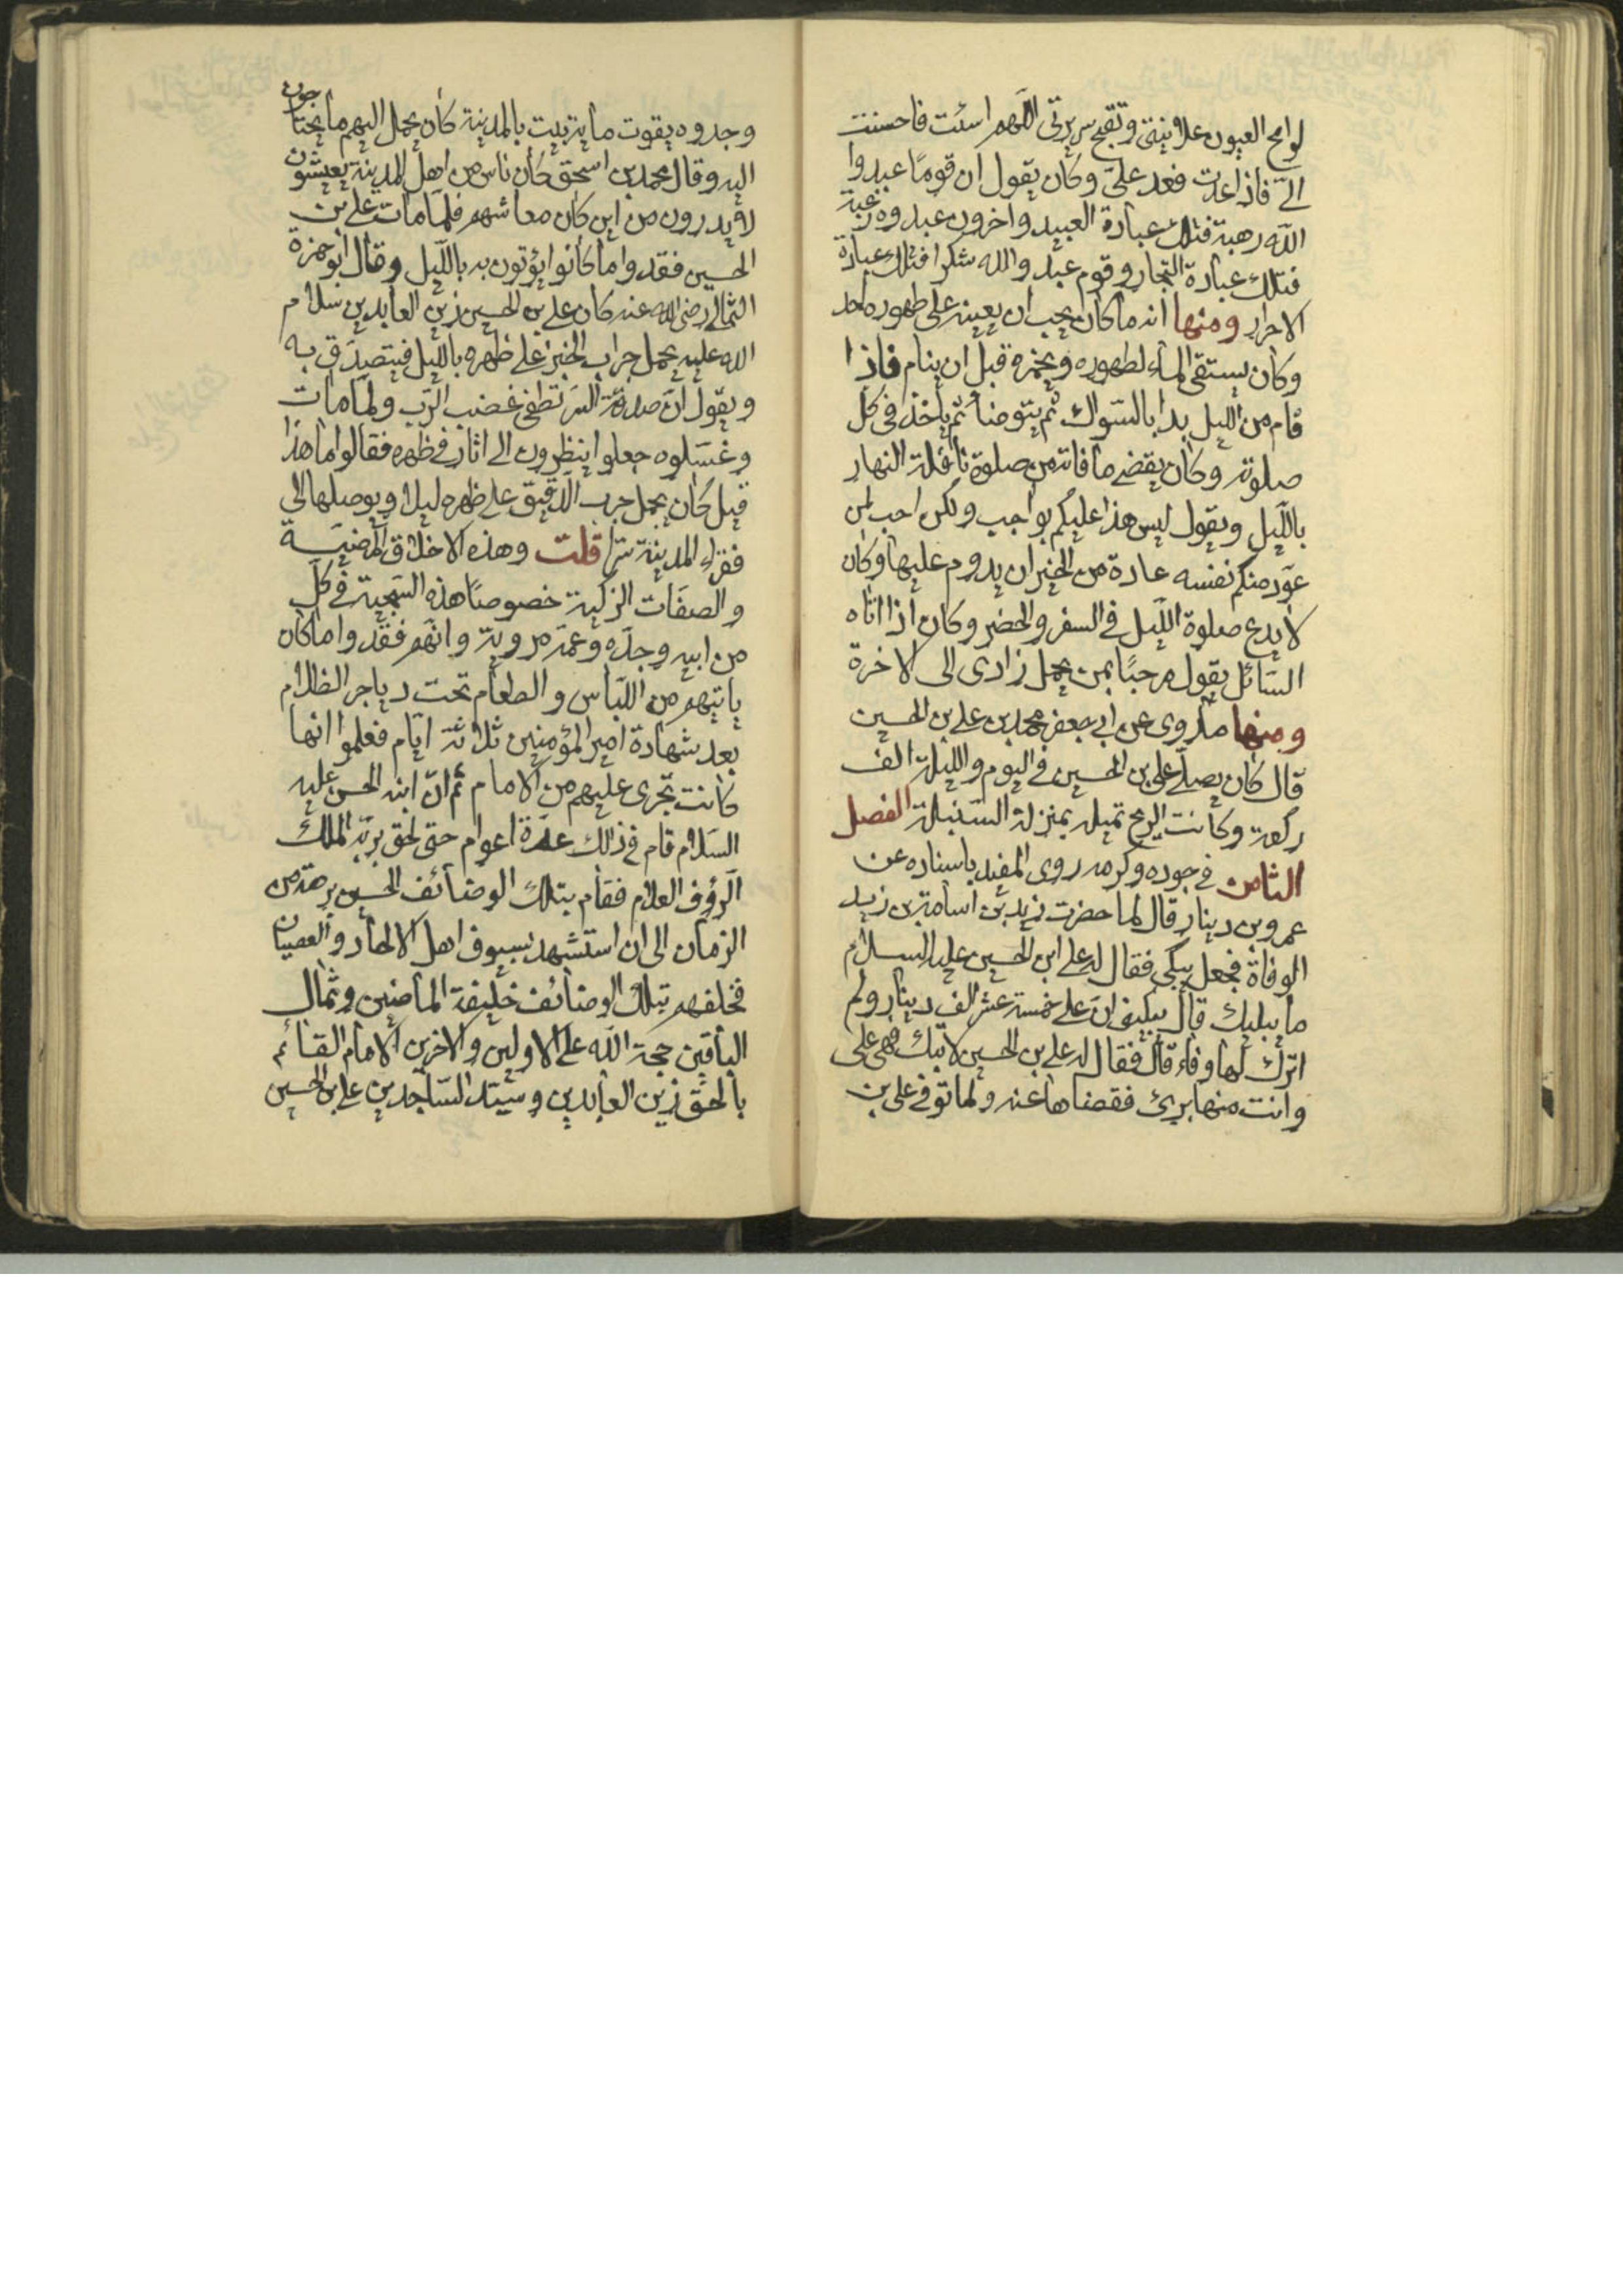 لوامح العيون علانيتي وتقبح سريرتي اللهم اسئت فاحسنت
الىّ فاذا عدت فعد علىّ وكان يقول ان قومًا عبدوا
الله رهبة فتلك عبادة العبيد واخرون عبدوه رغبة
فتلك عبادة التجار وقوم عبدوالله شكرا فتلك عبادة
الاحرار ومنها انه ما كان يحب ان يعينه على طهوره احد
وكان يستقى الماء لطهوره ويخمره قبل ان ينام فاذا
قام من الليل بدا بالسّواك ثم يتوضأ ثم ياخذ فى كل
صلوته وكان يقضى ما فاته من صلوة نافلة النهار
بالليل ويقول ليس هذا عليكم بواجب ولكن احب لمن
عوّد منكم نفسه عادة من الخير ان يدوم عليها وكان
لا يدع صلوة الليل فى السفر والحضر وكان اذا اتاه
السائل يقول مرحبًا بمن يحمل زادى الى الاخرة
ومنها ما روى عن ابى جعفر محمد بن على بن الحسين
قال كان يصلّى على بن الحسين فى اليوم والليلة الف
ركعة وكانت الريح تميله بمنزلة السنبلة الفصل
الثامن فى جوده وكرمه روى المفيد باسناده عن
عمرو بن دينار قال لما حضرت زيد بن اسامة بن زيد
الوفاة فجعل يبكى فقال له على ابن الحسين عليه السلام
ما يبكيك قال يبكينى انّ على خمسة عشر الف دينار ولم
اترك لها وفاء قال فقال له على بن الحسين لا تبك فهى على
وانت منها برئ فقضاها عنه ولما توفى على بن
وجدوه يقوت ماية بيت بالمدينة كان يحمل اليهم ما يحتاجون
اليه وقال محمد بن اسحق كان ناس من اهل المدينة يعيشون
لا يدرون من اين كان معاشهم فلمّا مات على بن
الحسين فقدوا ما كانوا يؤتون به بالليل وقال ابو حمزة
الثمالى رضى الله عنه كان على بن الحسين زين العابدين سلام
الله عليه يحمل جراب الخبز على ظهره بالليل فيتصدّق به
ويقول انّ صدقة السّر تطفئ غضب الرّب ولمّا مات
وغسّلوه جعلوا ينظرون الى اثار فى ظهره فقالوا ما هذا
قيل كان يحمل جرب الدقيق على ظهره ليلا ويوصلها الى
فقراء المدينة سرّا قلت وهذه الاخلاق المرضيّة
والصفات الزكية خصوصًا هذه السّجية فى كلّ
من ابيه وجدّه وعمّه مرويّة وانهم فقدوا ما كان
ياتيهم من اللباس والطعام تحت دياجر الظلام
بعد شهادة امير المؤمنين ثلاثة ايام فعلموا انها
كانت تجرى عليهم من الامام ثم انّ ابنه الحسن عليه
السّلام قام فى ذلك عدّة اعوام حتى لحق بربّه الملك
الرؤف العلام فقام بتلك الوضائف الحسين برهة من
الزمان الى ان استشهد بسيوف اهل الالحاد والعصيان
فخلفهم بتلك الوضائف خليفة الماضين وثمال
الباقين حجة الله على الاولين والاخرين الامام القائم
بالحقّ زين العابدين وسيّد السّاجدين على بن الحسين